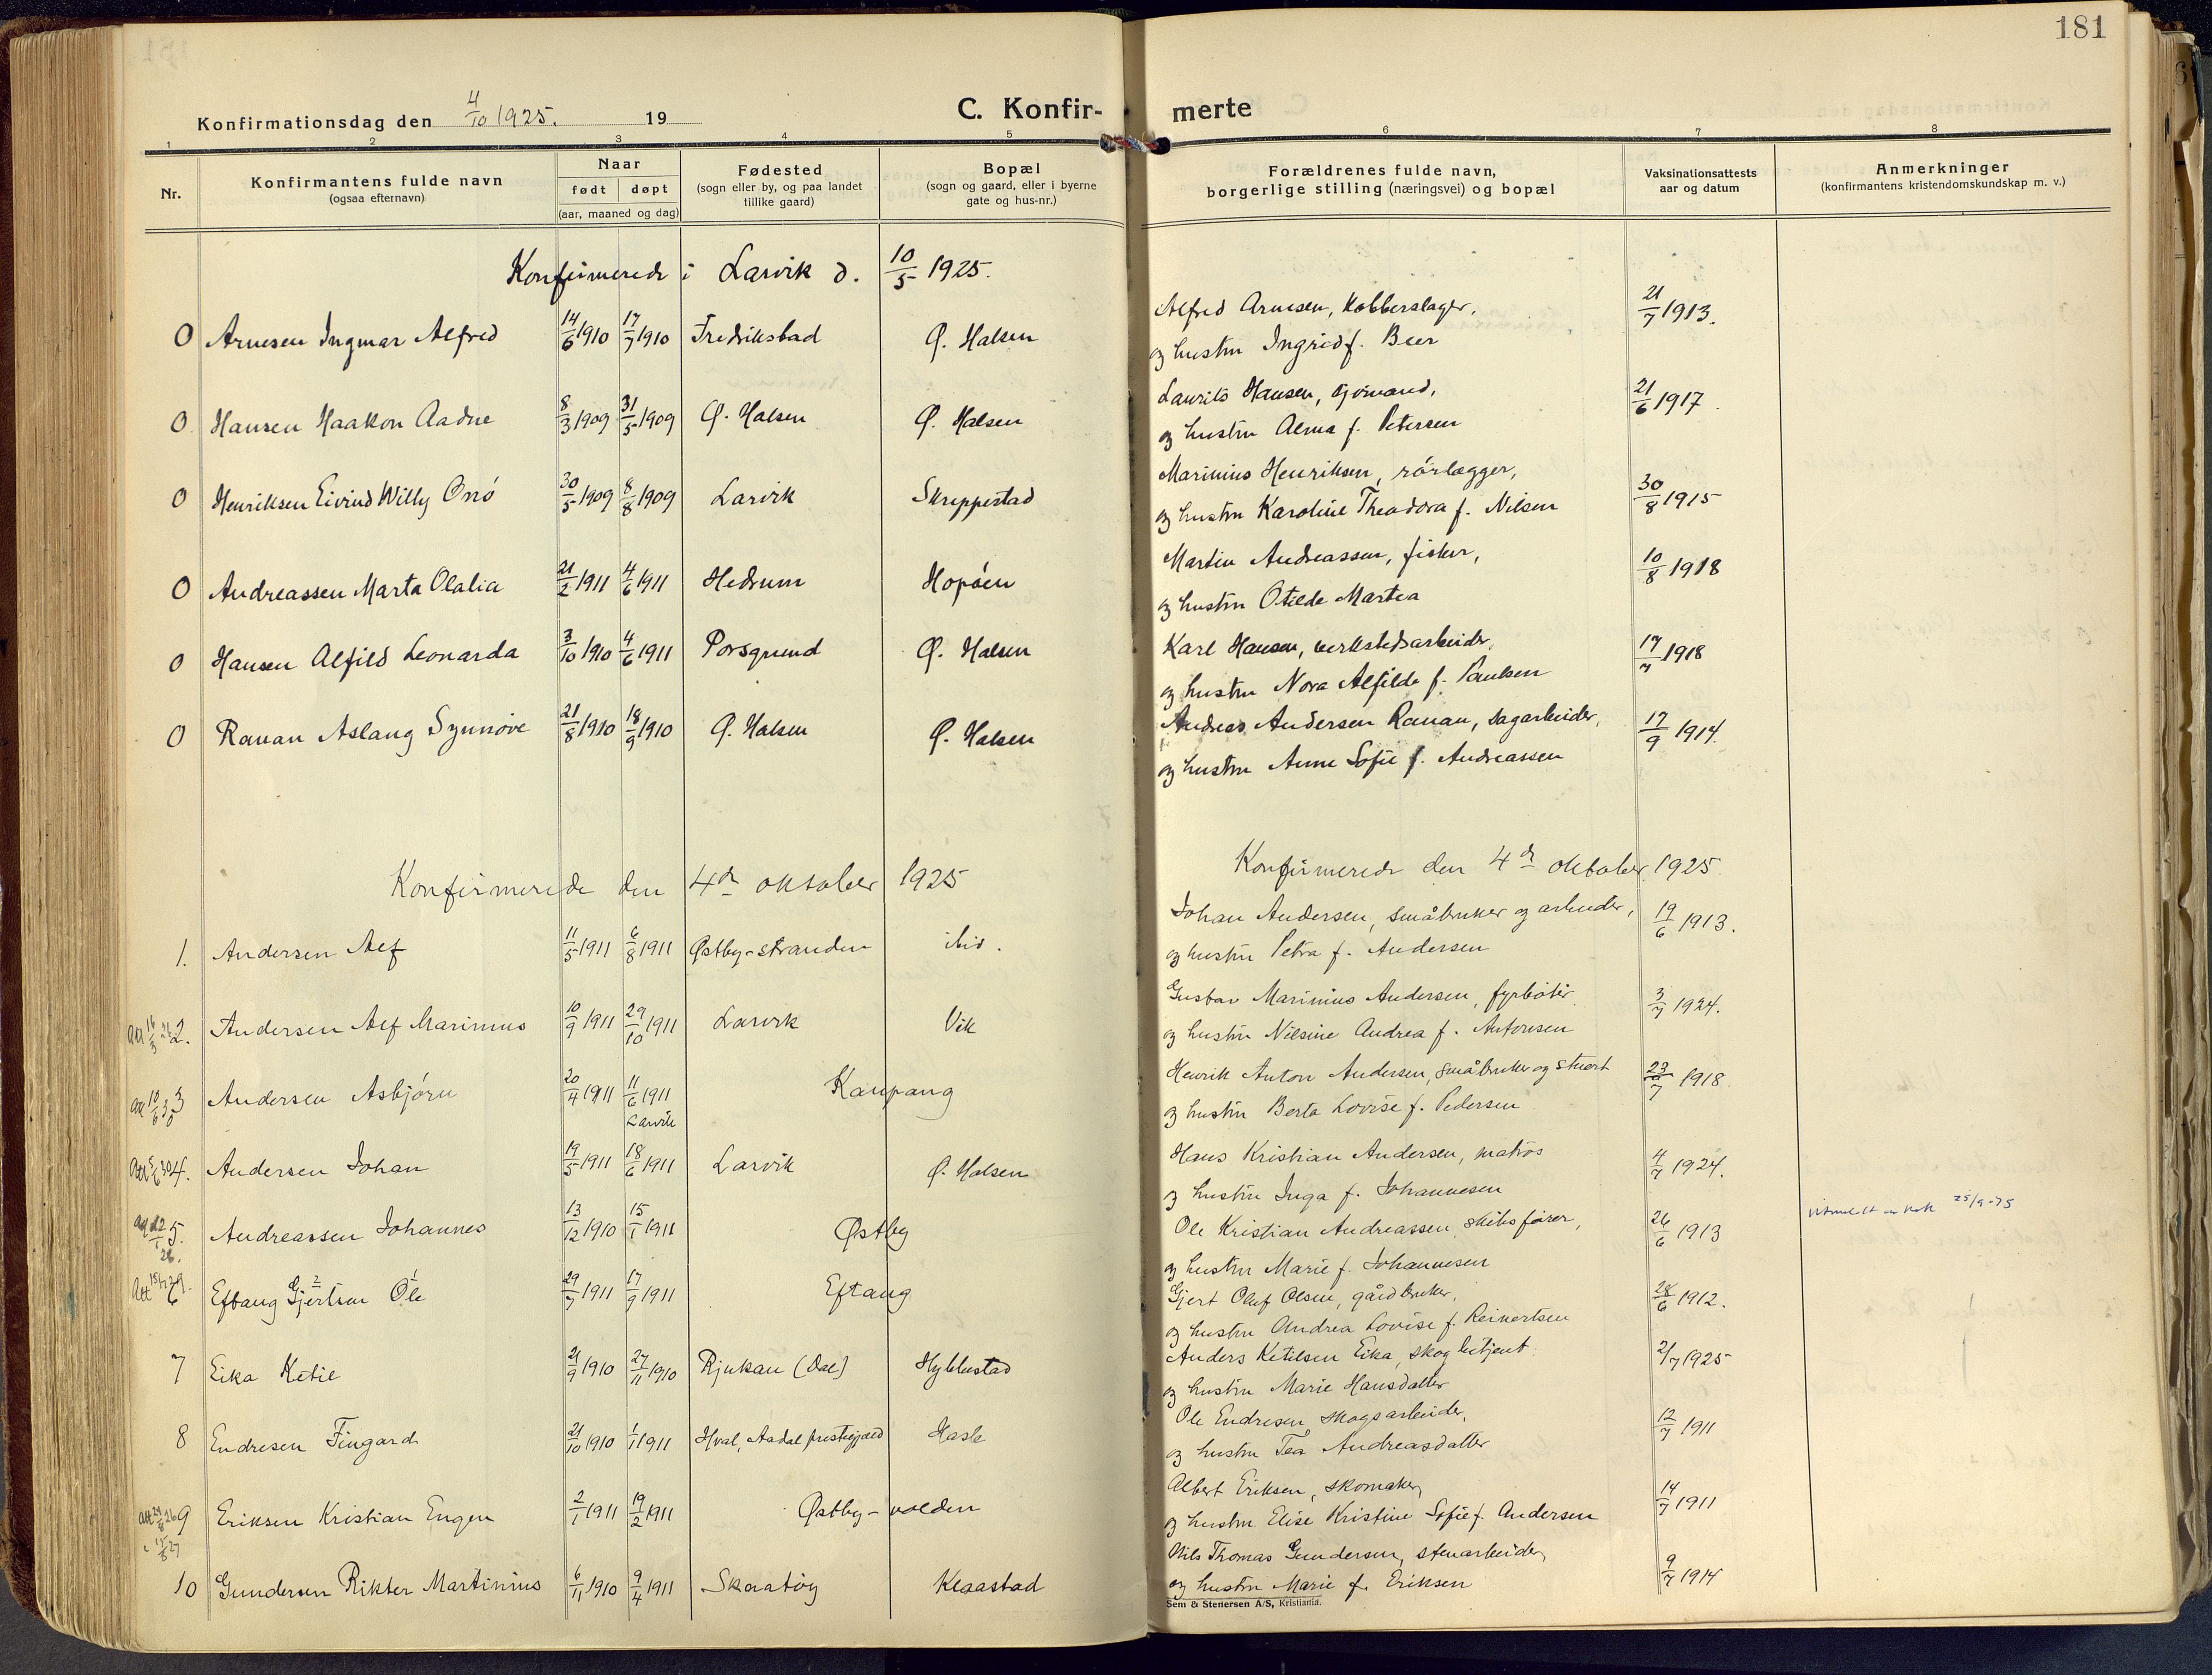 181
Konfirmationsdag den 4/10 1925. 19
C. Konfir-
merte
1 2 3 4 5 6 7 8
Nr.
Konfirmantens fulde navn
(ogsaa efternavn)
Naar
født døpt
(aar, maaned og dag)
Fødested
(sogn eller by, og paa landet
tillike gaard)
Bopæl
(sogn og gaard, eller i byerne
gate og hus-nr.)
Forældrenes fulde navn,
borgerlige stilling (næringsvei) og bopæl
Vaksinationsattests
aar og datum
Anmerkninger
(konfirmantens kristendomskundskap m. v.)
Konfirmerede i Larvik d. 10/5 1925.
0 Arnesen Ingmar Alfred 14/6 1910 17/7 1910 Fredrikstad Ø. Halsen
Alfred Arnesen, Kobberslager, 21/7 1913.
og hustru Ingrid f. Beer
0 Hansen Haakon Aadne 8/3 1909 31/5 1909 Ø. Halsen Ø. Halsen
Laurits Hansen, sjømand, 21/6 1917.
og hustru Alma f. Petersen
0 Henriksen Eivind Willy Onsö 30/5 1909 8/8 1909 Larvik Skreppestad
Marinius Henriksen, rörlægger, 30/8 1915
og hustru Karoline Theodora f. Nilsen
0 Andreassen Marta Olalia 21/2 1911 4/6 1911 Hedrum Hopöen
Martin Andreassen, fisker, 10/8 1918
og hustru Otilde Martea
0 Hansen Alfild Leonarda 3/10 1910 4/6 1911 Porsgrund Ø. Halsen
Karl Hansen, verkstedsarbeider, 17/7 1918
og hustru Nora Alfilde f. Paulsen
0 Ranan Aslaug Synnøve 21/8 1910 18/9 1910 Ø. Halsen Ø. Halsen
Andreas Andersen Ranan, sagarbeider, 17/9 1914.
og hustru Anne Sofie f. Andreassen
Konfirmerede den 4de oktober 1925
Konfirmerede den 4de oktober 1925.
1. Andersen Alf 11/5 1911 6/8 1911 Østby-stranden ibid.
Johan Andersen, småbruker og arbeider, 19/6 1913.
og hustru Petra f. Andersen
Att 16/3 26 2. Andersen Alf Marinius 10/9 1911 29/10 1911 Larvik Vik
Gustav Marinius Andersen, fyrböter, 3/7 1924.
og hustru Nilsine Andrea f. Antonsen
Att 10/6 30 3 Andersen Asbjörn 20/4 1911 11/6 1911 Larvik Kaupang
Henrik Anton Andersen, småbruker og stuert 23/7 1918
og hustru Berta Lovise f. Pedersen
Att 5/6 30 4. Andersen Johan 19/5 1911 18/6 1911 Larvik Ø. Halsen
Hans Kristian Andersen, matros 4/7 1924.
og hustru Inga f. Johannesen
Att 12/1 26. 5. Andreassen Johannes 13/12 1910 15/1 1911 Østby
Ole Kristian Andreassen, skibsfører, 26/6 1913 25/9-75
og hustru Marie f. Johannesen
Att 6 Eftang Gjertsen Ole 29/7 1911 17/9 1911 Eftang
Gjert Oluf Olsen, gårdbruker, 28/6 1912.
og hustru Andrea Lovise f. Reinertsen
7 Eika Ketil 21/9 1910 27/11 1910 Rjukan (Dal) Hybbestad
Anders Ketilsen Eika, skogbetjent. 2/7 1925
og hustru Marie Hansdatter
8 Endresen Fingard 21/10 1910 1/1 1911 Hval, Aadal prestegjæld Hasle
Ole Endresen, skogsarbeider, 12/7 1911
og hustru Tea Andreasdatter
Att 9 Eriksen Kristian Engen 2/1 1911 19/2 1911 Østby-volden
Albert Eriksen, skomaker, 14/7 1911
og hustru Elise Kristine Sofie f. Andersen
10 Gundersen Rikter Martinius 6/11 1910 9/4 1911 Skaatøy Klaastad
Nils Thomas Gundersen, stenarbeider, 9/7 1914
og hustru Marie f. Eriksen
Sem & Stenersen A/S, Kristiania.